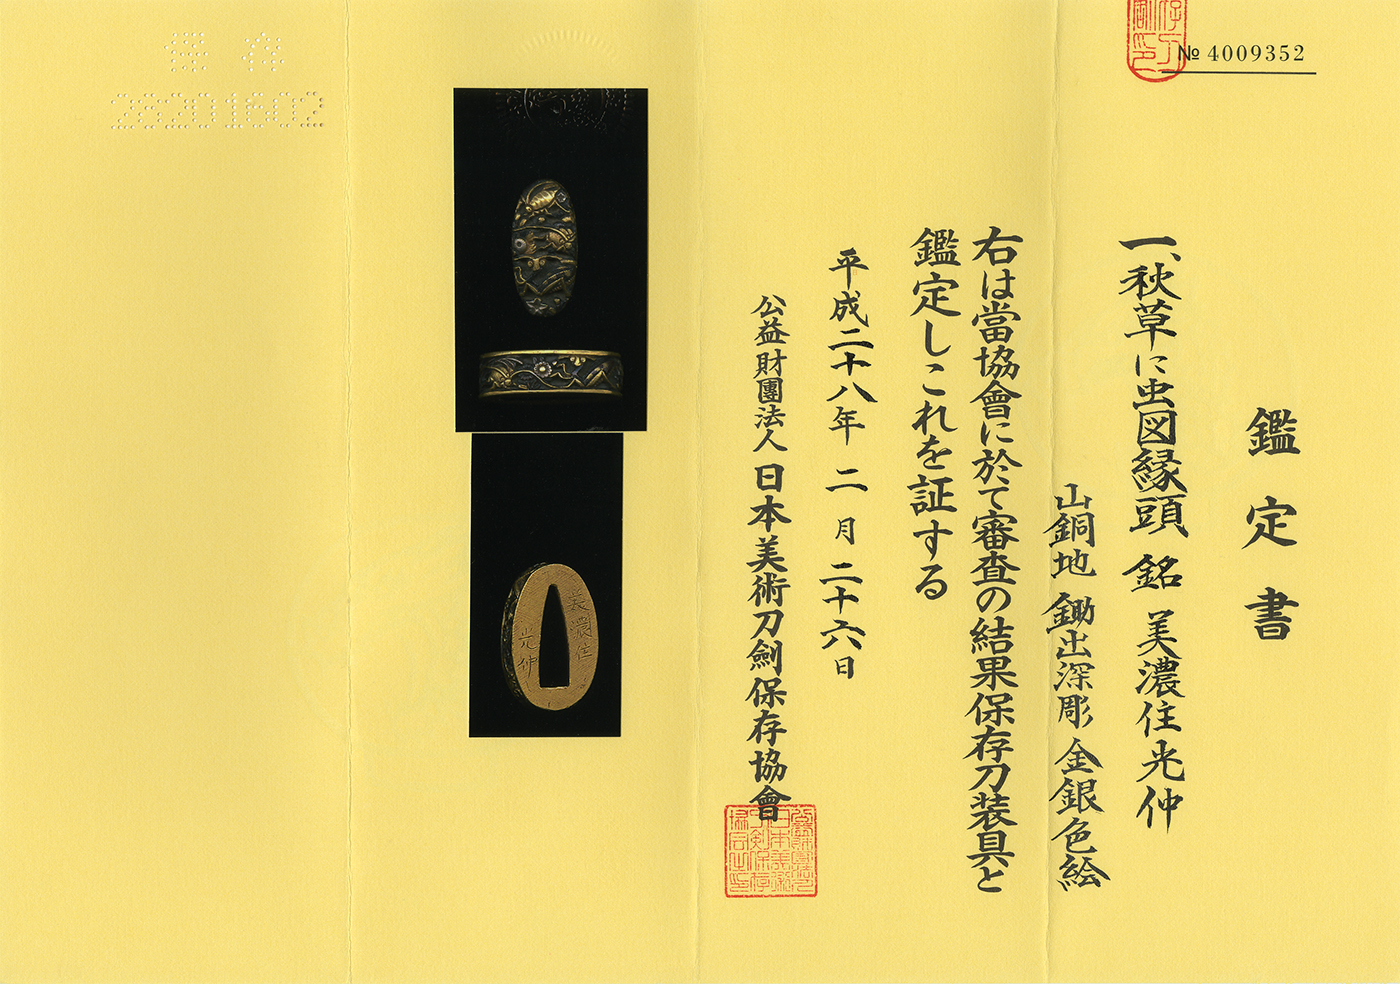 № 4009352
鑑定書
一、秋草に虫図縁頭 銘 美濃住光仲
山銅地 鋤出深彫 金銀色絵
右は當協會に於て審査の結果保存刀装具と
鑑定しこれを証する
平成二十八年 二月 二十六日
公益財團法人 日本美術刀劍保存協會
美濃住
光仲
保存
28201602